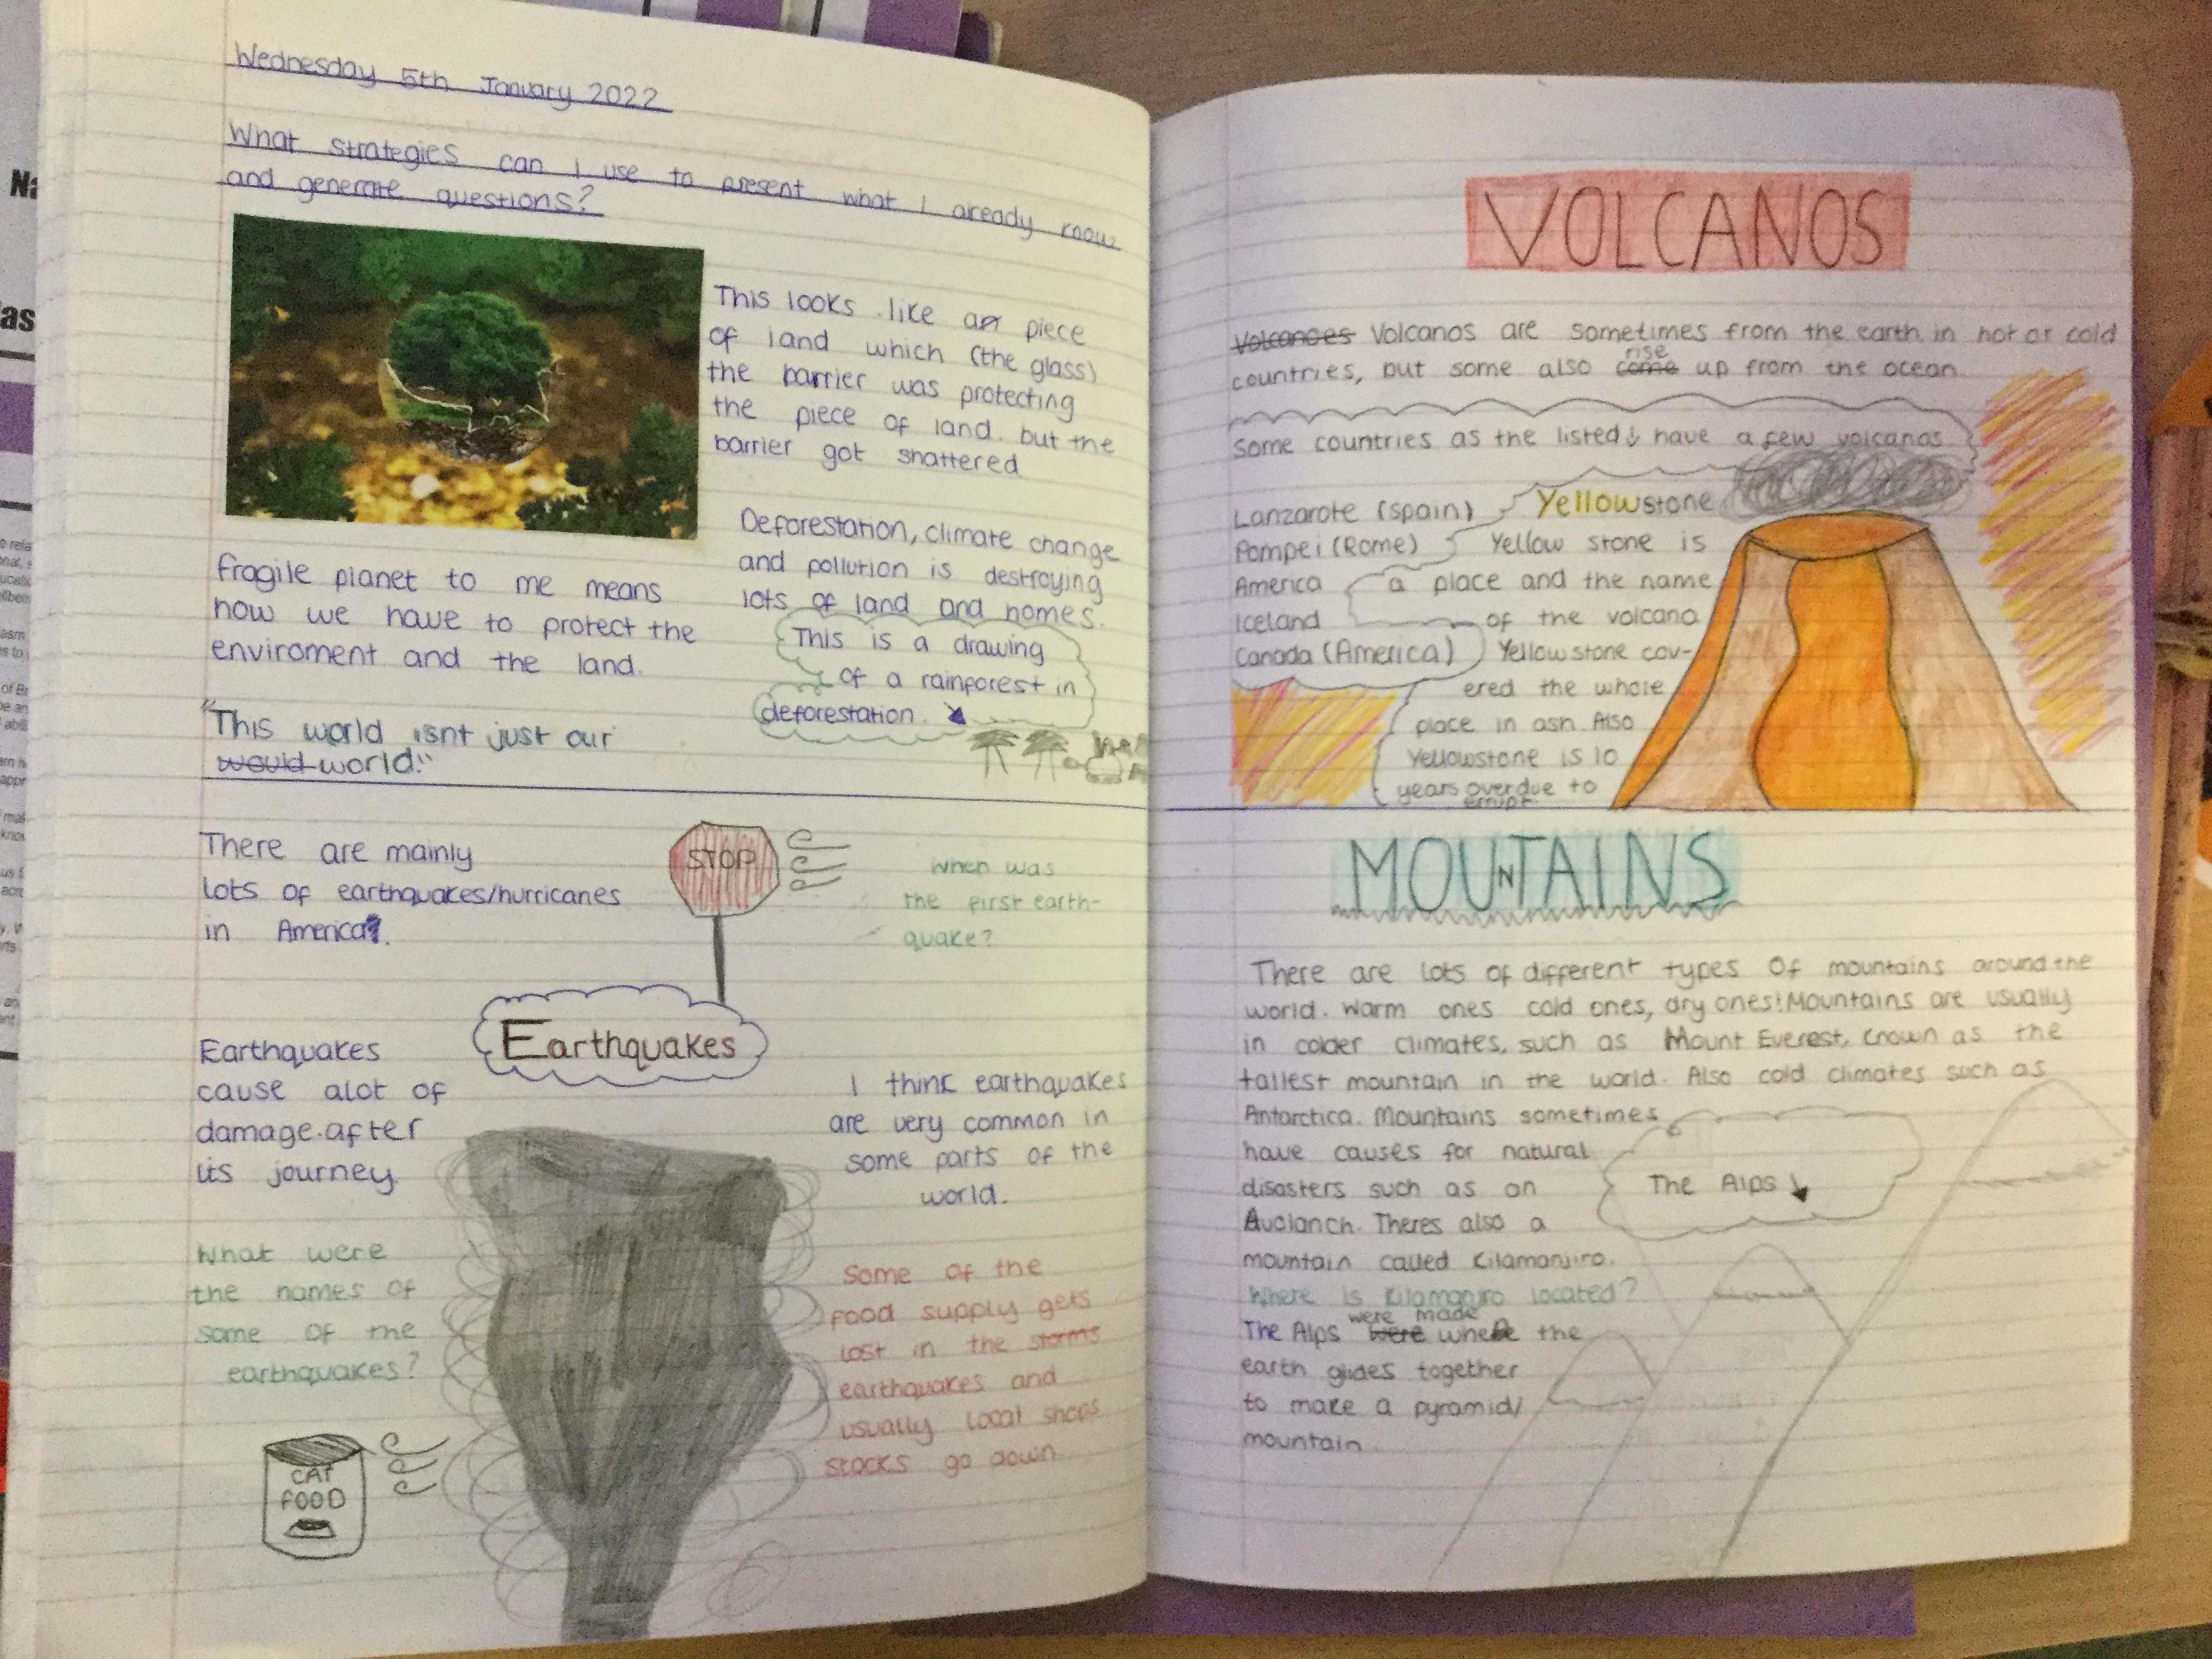 Wednesday 5th January 2022
What strategies can I use to present what I already know
and generate questions?
This looks like a piece
of land which (the glass)
the barrier was protecting
the piece of land. but the
barrier got shattered.
Deforestation, climate change
and pollution is destroying
lots of land and homes.
fragile planet to me means
how we have to protect the
enviroment and the land.
This is a drawing
of a rainforest in
deforestation.
"This world isnt just our
would world."
There are mainly
lots of earthquakes/hurricanes
in America.
STOP
When was
the first earth-
quake?
Earthquakes
Earthquakes
cause alot of
damage.after
its journey.
I think earthquakes
are very common in
some parts of the
world.
What were
the names of
some of the
earthquakes?
Some of the
food supply gets
lost in the storms
earthquakes and
usually local shops
stocks go down
CAT
FOOD
VOLCANOS
Volcanoes Volcanos are sometimes from the earth in hot or cold
countries, but some also come rise up from the ocean.
Some countries as the listed↓ have a few volcanos
Lanzarote (spain)
Pompei (Rome)
America
Iceland
Canada (America)
Yellowstone
Yellow stone is
a place and the name
of the volcano
Yellowstone cov-
ered the whole
place in ash. Also
Yellowstone is 10
years overdue to
errupt
MOUNTAINS
There are lots of different types of mountains around the
world. Warm ones cold ones, dry ones! Mountains are usually
in colder climates, such as Mount Everest, known as the
tallest mountain in the world. Also cold climates such as
Antarctica. Mountains sometimes
have causes for natural
disasters such as an
Avalanch. Theres also a
mountain called Kilamanjiro.
Where is Kilamanjiro located?
The Alps were were made when the
earth glides together
to make a pyramid/
mountain.
The Alps